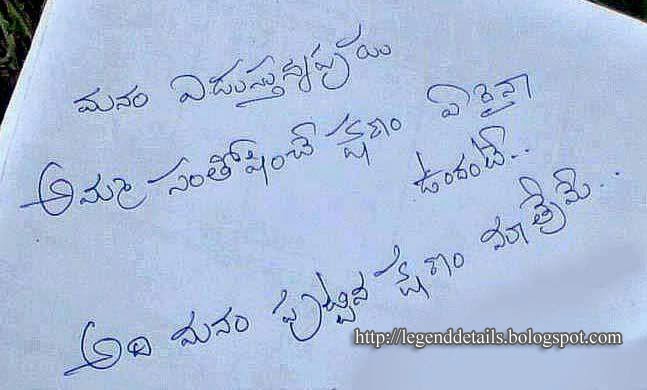 మనం ఏడుస్తున్నప్పుడు
అమ్మ సంతోషించే క్షణం ఏదైనా
ఉందంటే..
అది మనం పుట్టిన క్షణం మాత్రమే..
http://legenddetails.bologspot.com